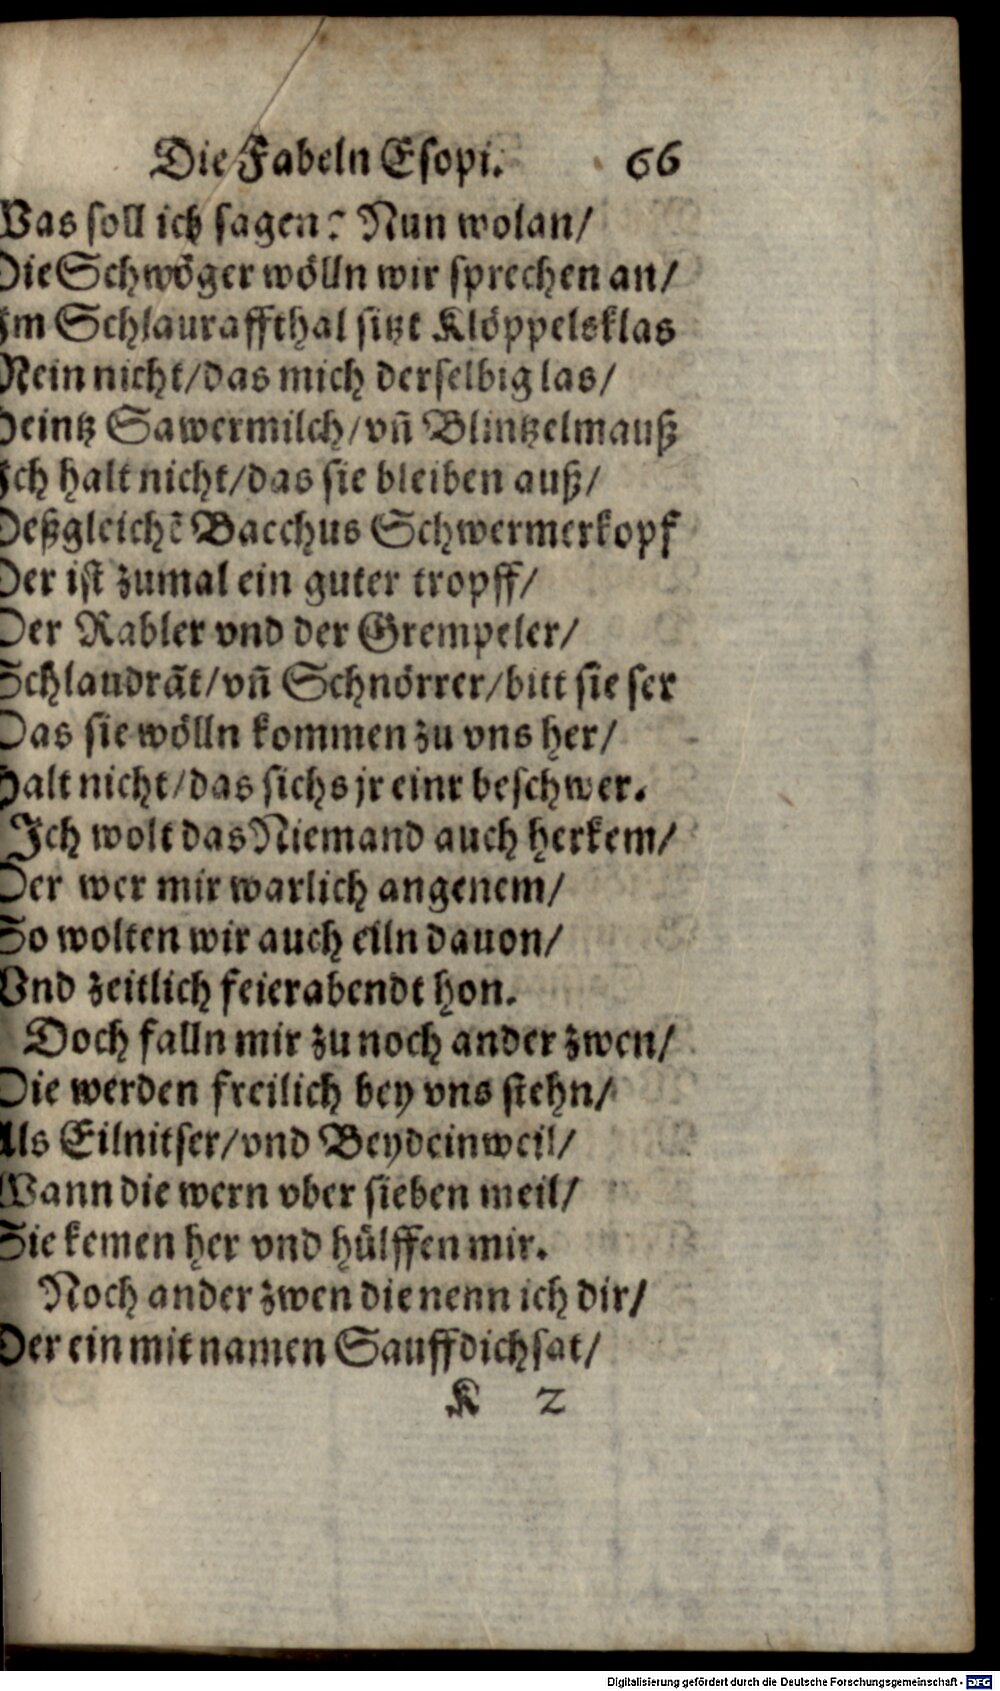 Die Fabeln Esopi. 66
Was soll ich sagen? Nun wolan/
Die Schwöger wölln wir sprechen an/
Im Schlauraffthal sitzt Klöppelsklas
Nein nicht/das mich derselbig las/
Heintz Sawermilch/vn̄ Blintzelmauß
Ich halt nicht/das sie bleiben auß/
Deßgleichē Bacchus Schwermerkopf
Der ist zumal ein guter tropff/
Der Rabler vnd der Grempeler/
Schlaudrāt/vn̄ Schnörrer/bitt sie ser
Das sie wölln kommen zu vns her/
Halt nicht/das sichs jr einr beschwer.
Ich wolt das Niemand auch herkem/
Der wer mir warlich angenem/
So wolten wir auch eiln dauon/
Vnd zeitlich feierabendt hon.
Doch falln mir zu noch ander zwen/
Die werden freilich bey vns stehn/
Als Eilnitser/vnd Beydeinweil/
Wann die wern vber sieben meil/
Sie kemen her vnd hülffen mir.
Noch ander zwen die nenn ich dir/
Der ein mit namen Sauffdichsat/
K 2
Digitalisierung gefördert durch die Deutsche Forschungsgemeinschaft - DFG